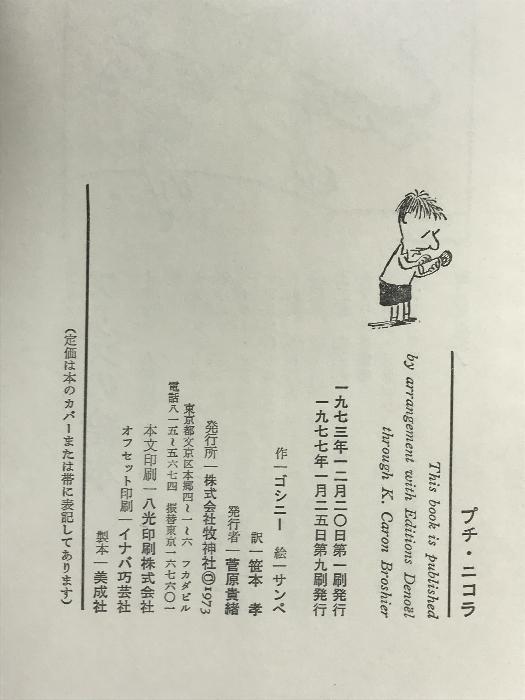 プチ・ニコラ
This book is published
by arrangement with Editions Denoël
through K. Caron Broshier
一九七三年一二月二〇日第一刷発行
一九七七年一月二五日第九刷発行
作━ゴシニー 絵━サンペ
訳━笹本 孝
発行者━菅原貴緒
発行所━株式会社牧神社©1973
東京都文京区本郷四〜一〜六 フカダビル
電話八一五〜五六七四 振替東京一六七六〇一
本文印刷━八光印刷株式会社
オフセット印刷━イナバ巧芸社
製本━美成社
(定価は本のカバーまたは帯に表記してあります)